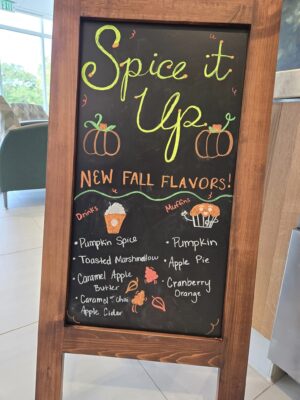 EXIT
Spice it
Up
NEW FALL FLAVORS!
Drinks
• Pumpkin Spice
• Toasted Marshmallow
• Caramel Apple
Butter
• Caramel-Chai
Apple Cider
Muffins
• Pumpkin
• Apple Pie
• Cranberry
Orange